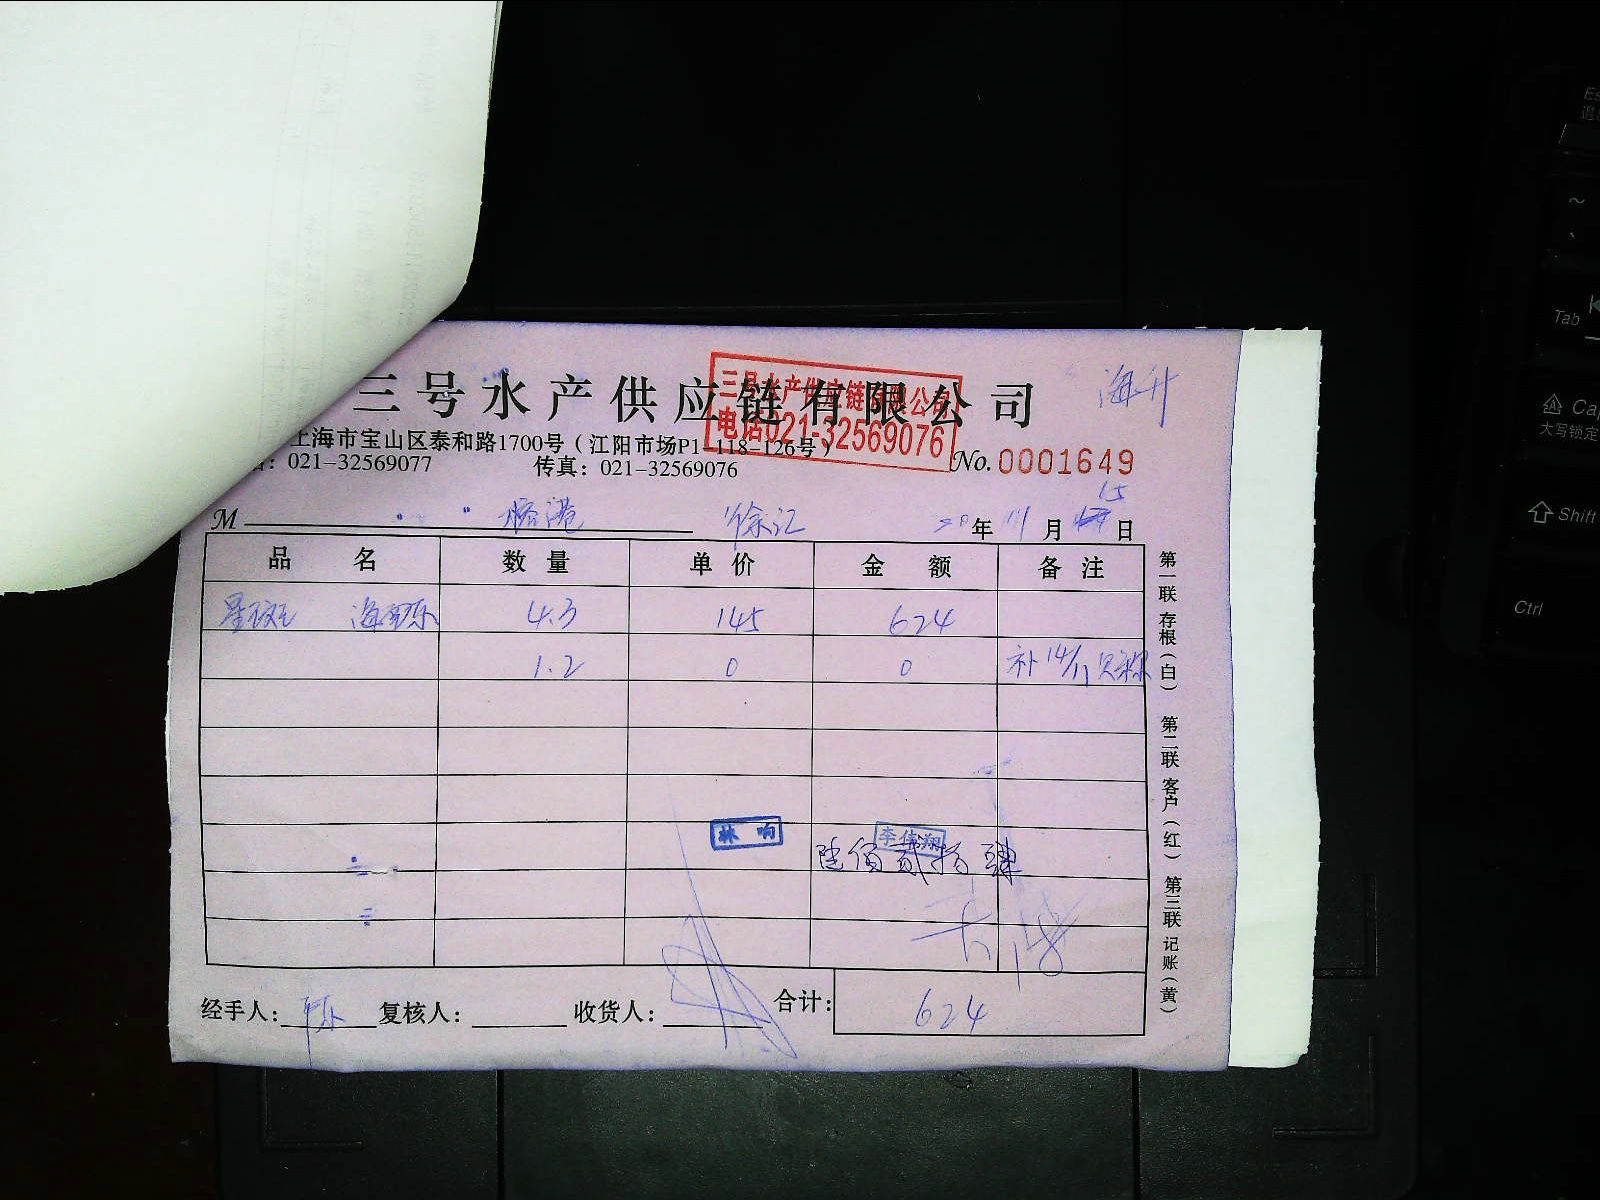 海升
三号水产供应链有限公司
三号水产供应链有限公司
电话021-32569076
上海市宝山区泰和路1700号（江阳市场P1-118-126号）
：021-32569077 传真：021-32569076
No.0001649
M 徐汇 20年11月15日
品名 数量 单价 金额 备注
星斑 4.3 145 624
1.2 0 0 补14/11
林响
李伟翔
陆佰贰拾肆
经手人： 复核人： 收货人： 合计：624
第一联 存根（白） 第二联 客户（红） 第三联 记账（黄）
Es
~
Tab
Ca
大写锁定
Shift
Ctrl